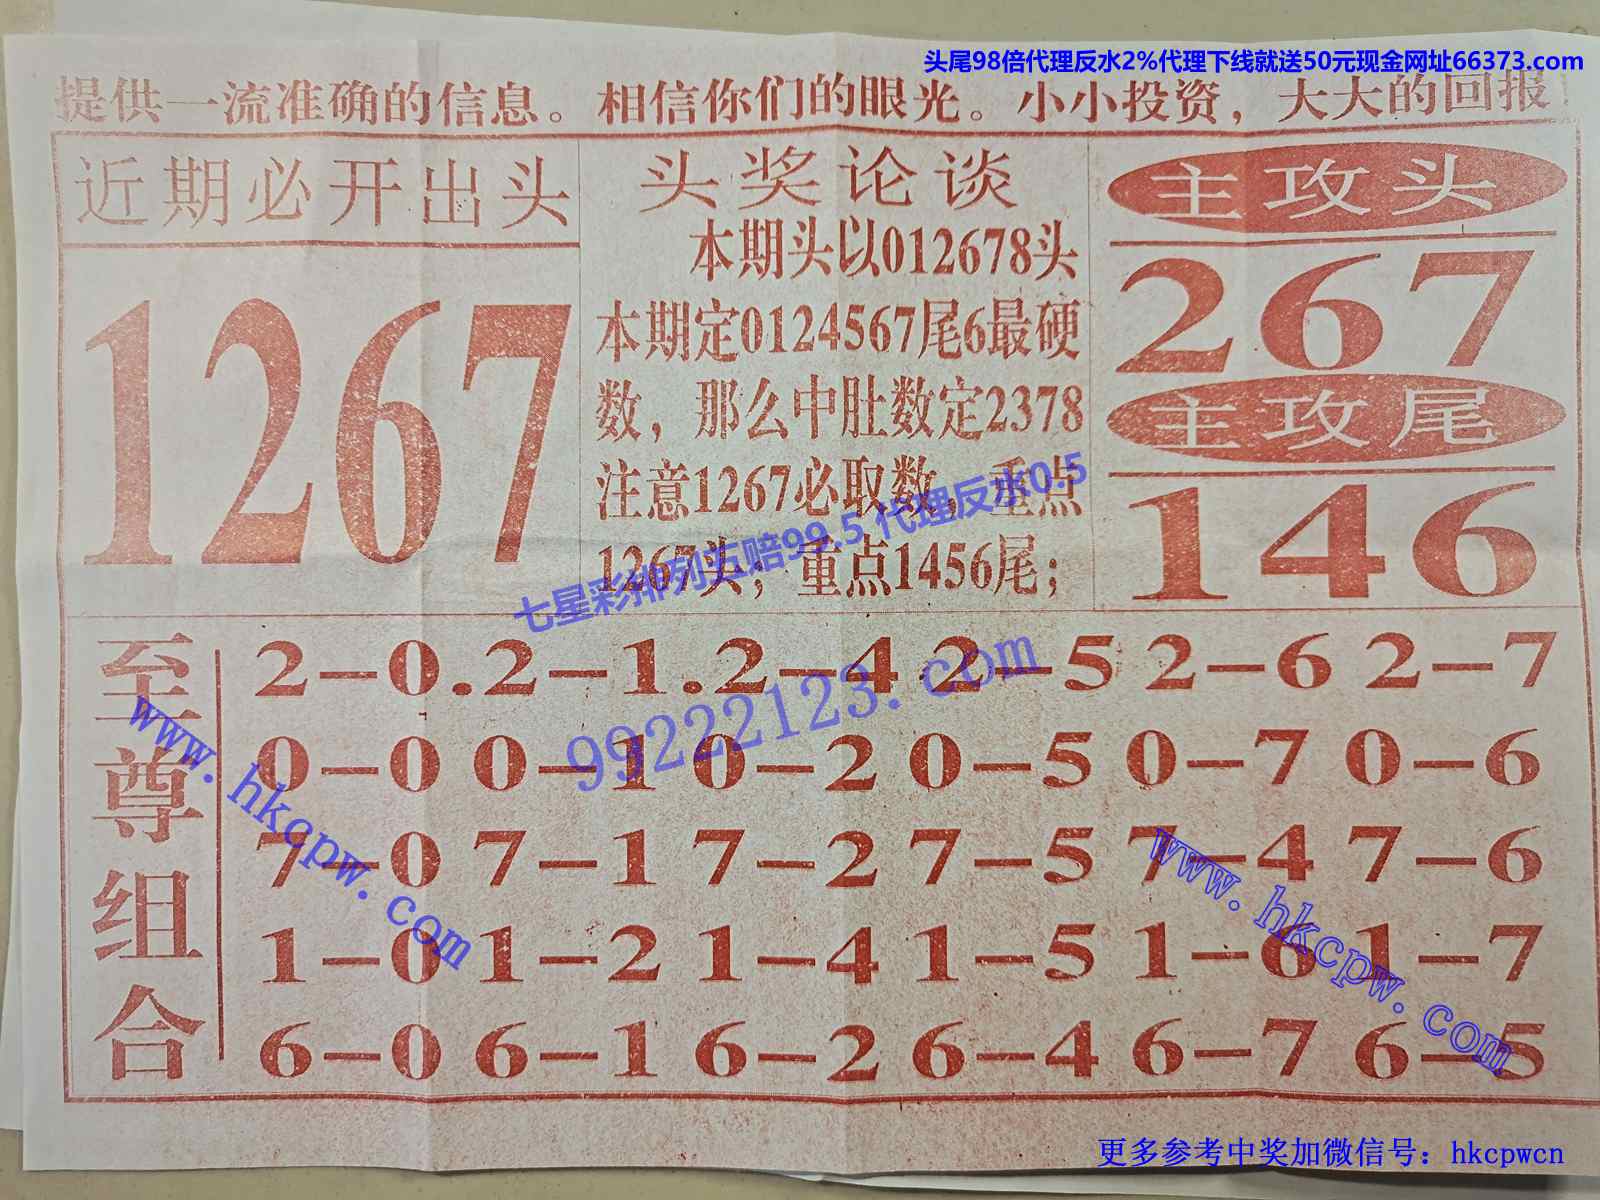 头尾98倍代理反水2%代理下线就送50元现金网址66373.com
提供一流准确的信息。相信你们的眼光。小小投资，大大的回报
近期必开出头
1267
头奖论谈
本期头以012678头
本期定0124567尾6最硬
数，那么中肚数定2378
注意1267必取数，重点
1267头；重点1456尾；
七星彩排列五赔99.5 代理反水0.5
主攻头
267
主攻尾
146
至尊组合
2-0.2-1.2-4 2-5 2-6 2-7
0-0 0-1 0-2 0-5 0-7 0-6
7-0 7-1 7-2 7-5 7-4 7-6
1-0 1-2 1-4 1-5 1-6 1-7
6-0 6-1 6-2 6-4 6-7 6-5
99222123.com
www.hkcpw.com
www.hkcpw.com
更多参考中奖加微信号：hkcpwcn